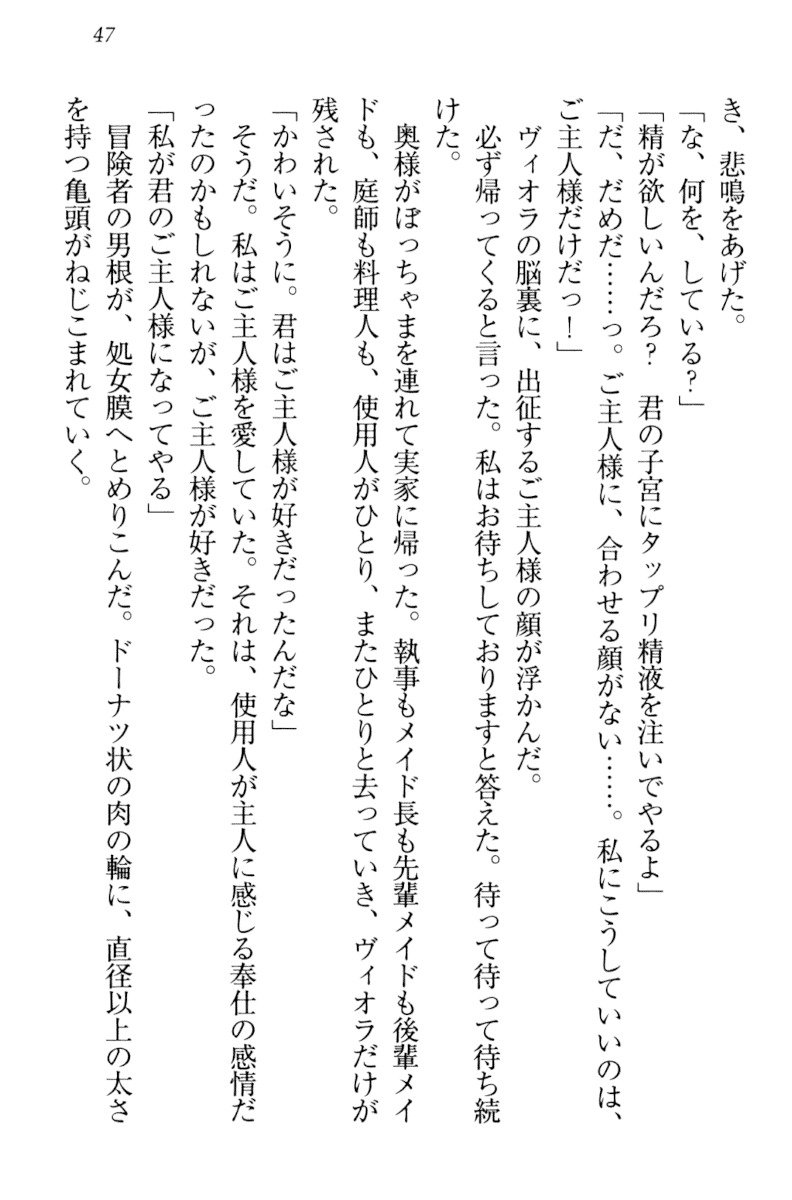 47
き、悲鳴をあげた。
「な、何を、している?」
「精が欲しいんだろ?　君の子宮にタップリ精液を注いでやるよ」
「だ、だめだ……っ。ご主人様に、合わせる顔がない……。私にこうしていいのは、
ご主人様だけだっ!」
　ヴィオラの脳裏に、出征するご主人様の顔が浮かんだ。
　必ず帰ってくると言った。私はお待ちしておりますと答えた。待って待って待ち続
けた。
　奥様がぼっちゃまを連れて実家に帰った。執事もメイド長も先輩メイドも後輩メイ
ドも、庭師も料理人も、使用人がひとり、またひとりと去っていき、ヴィオラだけが
残された。
「かわいそうに。君はご主人様が好きだったんだな」
　そうだ。私はご主人様を愛していた。それは、使用人が主人に感じる奉仕の感情だ
ったのかもしれないが、ご主人様が好きだった。
「私が君のご主人様になってやる」
　冒険者の男根が、処女膜へとめりこんだ。ドーナツ状の肉の輪に、直径以上の太さ
を持つ亀頭がねじこまれていく。